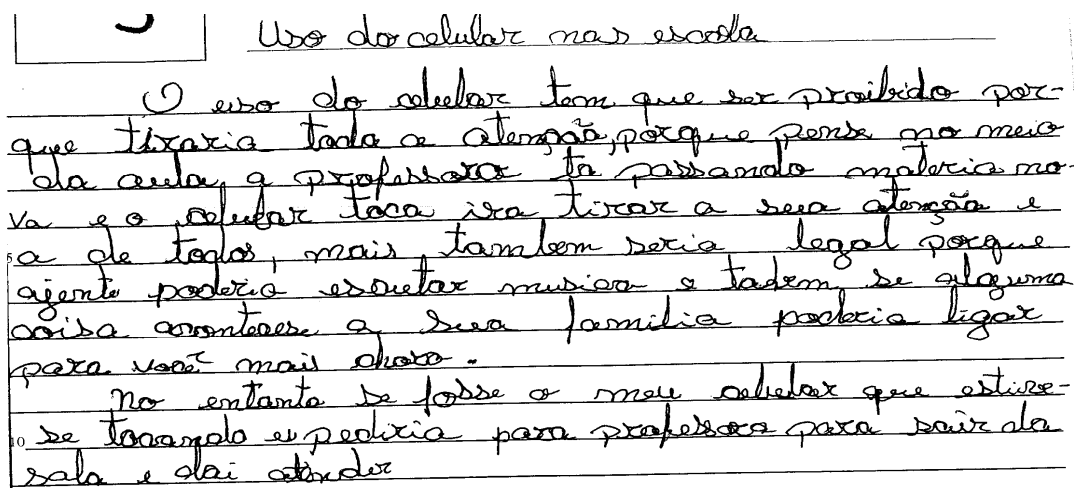 Uso do celular nas escola
O uso do celular tem que ser proibido por-
que tiraria toda a atenção, porque pense no meio
da aula, a professora ta passando materia no-
va e o celular toca ira tirar a sua atenção e
5 a de todos, mais tambem seria legal porque
ajente poderia escutar musica e tadem se alguma
coisa acontecese a sua familia poderia ligar
para você mais
No entanto se fosse o meu celular que estive-
10 se tocando eu pediria para professora para sair da
sala e dai atender